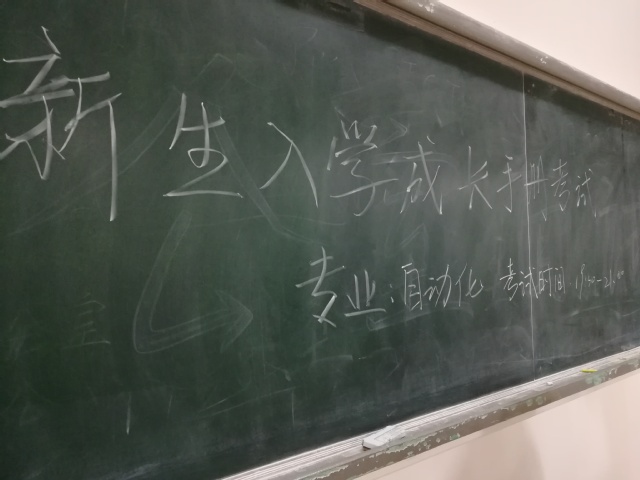 新生入学成长手册考试
专业:自动化 考试时间